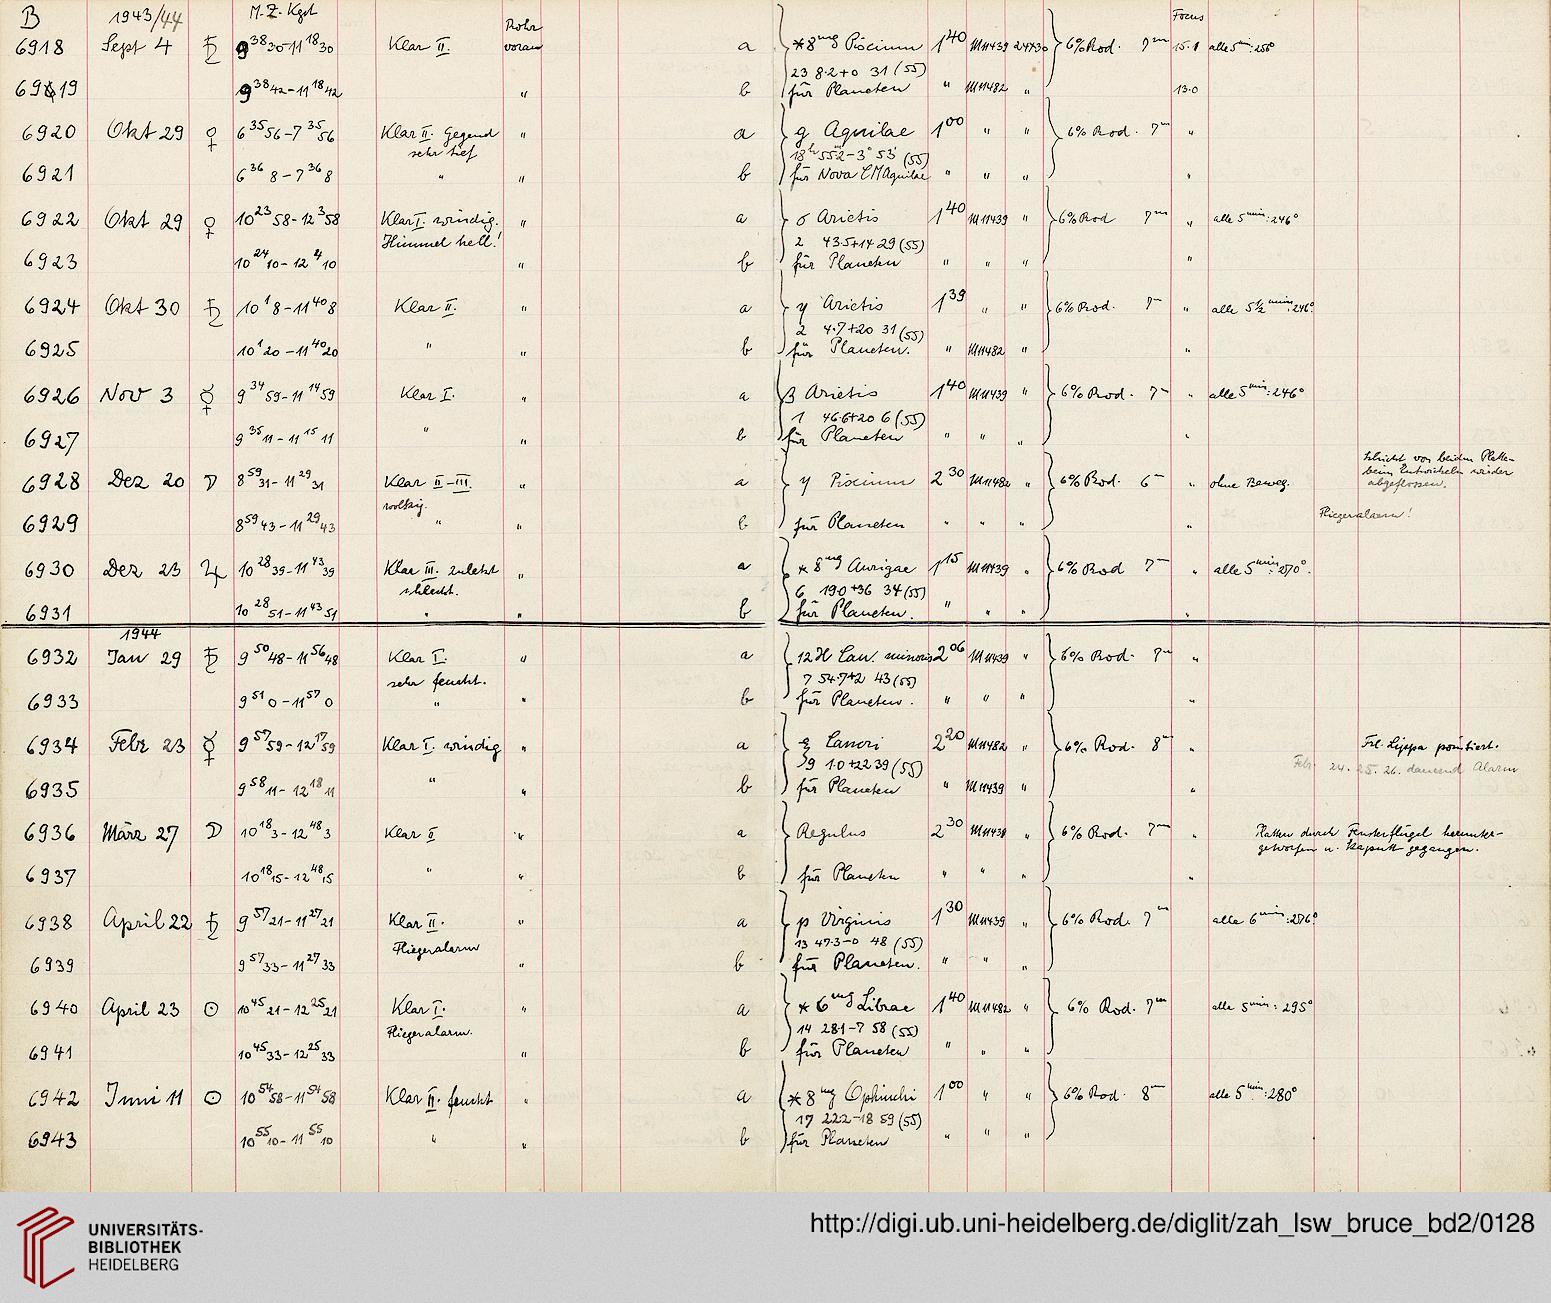 B 1943/44 M.Z. Kgst Rohr voran Focus
6918 Sept 4 ♄ 9 38 30-11 18 30 Klar II. a *8mg Piscium 1 40 M11439 24X30 6% Rod. 7m 15.1 alle 5min: 256°
23 8.2+0 31 (55)
6919 9 38 42-11 18 42 " b für Planeten " M11482 " 13.0
6920 Okt 29 ♀ 6 35 56-7 35 56 Klar II. Gegend " a g Aquilae 1 00 " " 6% Rod. 7m "
sehr tief 18h 55.2-3° 53' (55)
6921 6 36 8-7 36 8 " " b für Nova Aquilae " " " "
6922 Okt 29 ♀ 10 23 58-12 3 58 Klar I. windig. " a σ Arietis 1 40 M11439 " 6% Rod 7m " alle 5min: 246°
Himmel hell! 2 43.5+14 29 (55)
6923 10 24 10-12 4 10 " b für Planeten " " " "
6924 Okt 30 ♄ 10 1 8-11 40 8 Klar II. " a γ Arietis 1 39 " " 6% Rod. 7m " alle 5½min: 246°
2 4.7+20 31 (55)
6925 10 1 20-11 40 20 " " b für Planeten. " M11482 " "
6926 Nov 3 ☿ 9 34 59-11 14 59 Klar I. " a β Arietis 1 40 M11439 " 6% Rod. 7m " alle 5min: 246°
1 46.6+20 6 (55)
6927 9 35 11-11 15 11 " " b für Planeten " " " "
Schicht von beiden Platten
beim Entwickeln wieder
abgeflossen.
6928 Dez 20 ☽ 8 59 31-11 29 31 Klar II-III. " a η Piscium 2 30 M11482 " 6% Rod. 6m " ohne Beweg.
wolkig. Fliegeralarm!
6929 8 59 43-11 29 43 " " b für Planeten " " " "
6930 Dez 23 ♃ 10 28 39-11 43 39 Klar III. zuletzt " a *8mg Aurigae 1 15 M11439 " 6% Rod 7m " alle 5min: 270°.
schlecht. 6 19.0+36 34 (55)
6931 10 28 51-11 43 51 " " b für Planeten. " " " "
1944
6932 Jan 29 ♄ 9 50 48-11 56 48 Klar I. " a 12H Can. minoris 2 06 M11439 " 6% Rod. 7m "
sehr feucht. 7 54.7+2 43 (55)
6933 9 51 0-11 57 0 " " b für Planeten. " " " "
6934 Febr 23 ☿ 9 57 59-12 17 59 Klar I. windig " a ξ Cancri 2 20 M11482 " 6% Rod. 8m " Frl. Lippa pointiert.
9 1.0+22 39 (55) Febr. 24. 25. 26. dauernd Alarm
6935 9 58 11-12 18 11 " " b für Planeten " M11439 " "
6936 März 27 ☽ 10 18 3-12 48 3 Klar II " a Regulus 2 30 M11439 " 6% Rod. 7m " Platten durch Fensterflügel herunter-
geworfen u. kaputt gegangen.
6937 10 18 15-12 48 15 " " b für Planeten " " " "
6938 April 22 ♄ 9 57 21-11 27 21 Klar II. " a p Virginis 1 30 M11439 " 6% Rod. 7m " alle 6min: 276°
Fliegeralarm 13 47.3-0 48 (55)
6939 9 57 33-11 27 33 " b für Planeten. " " "
6940 April 23 ☉ 10 45 21-12 25 21 Klar I. " a *6mg Librae 1 40 M11482 " 6% Rod. 7m alle 5min: 295°
Fliegeralarm. 14 28.1-7 58 (55)
6941 10 45 33-12 25 33 " b für Planeten " " "
6942 Juni 11 ☉ 10 54 58-11 54 58 Klar II. feucht " a *8mg Ophiuchi 1 00 " " 6% Rod. 8m alle 5min: 280°
17 22.2-18 59 (55)
6943 10 55 10-11 55 10 " " b für Planeten " " "
UNIVERSITÄTS-
BIBLIOTHEK
HEIDELBERG
http://digi.ub.uni-heidelberg.de/diglit/zah_lsw_bruce_bd2/0128